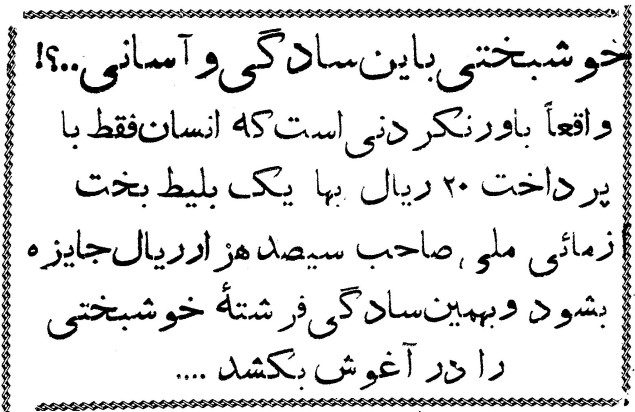 خوشبختی باین سادگی و آسانی..؟!
واقعاً باورنکردنی است که انسان فقط با
پرداخت ۲۰ ریال بها یک بلیط بخت
زمائی ملی صاحب سیصد هزار ریال جایزه
بشود و بهمین سادگی فرشتهٔ خوشبختی
را در آغوش بکشد ....